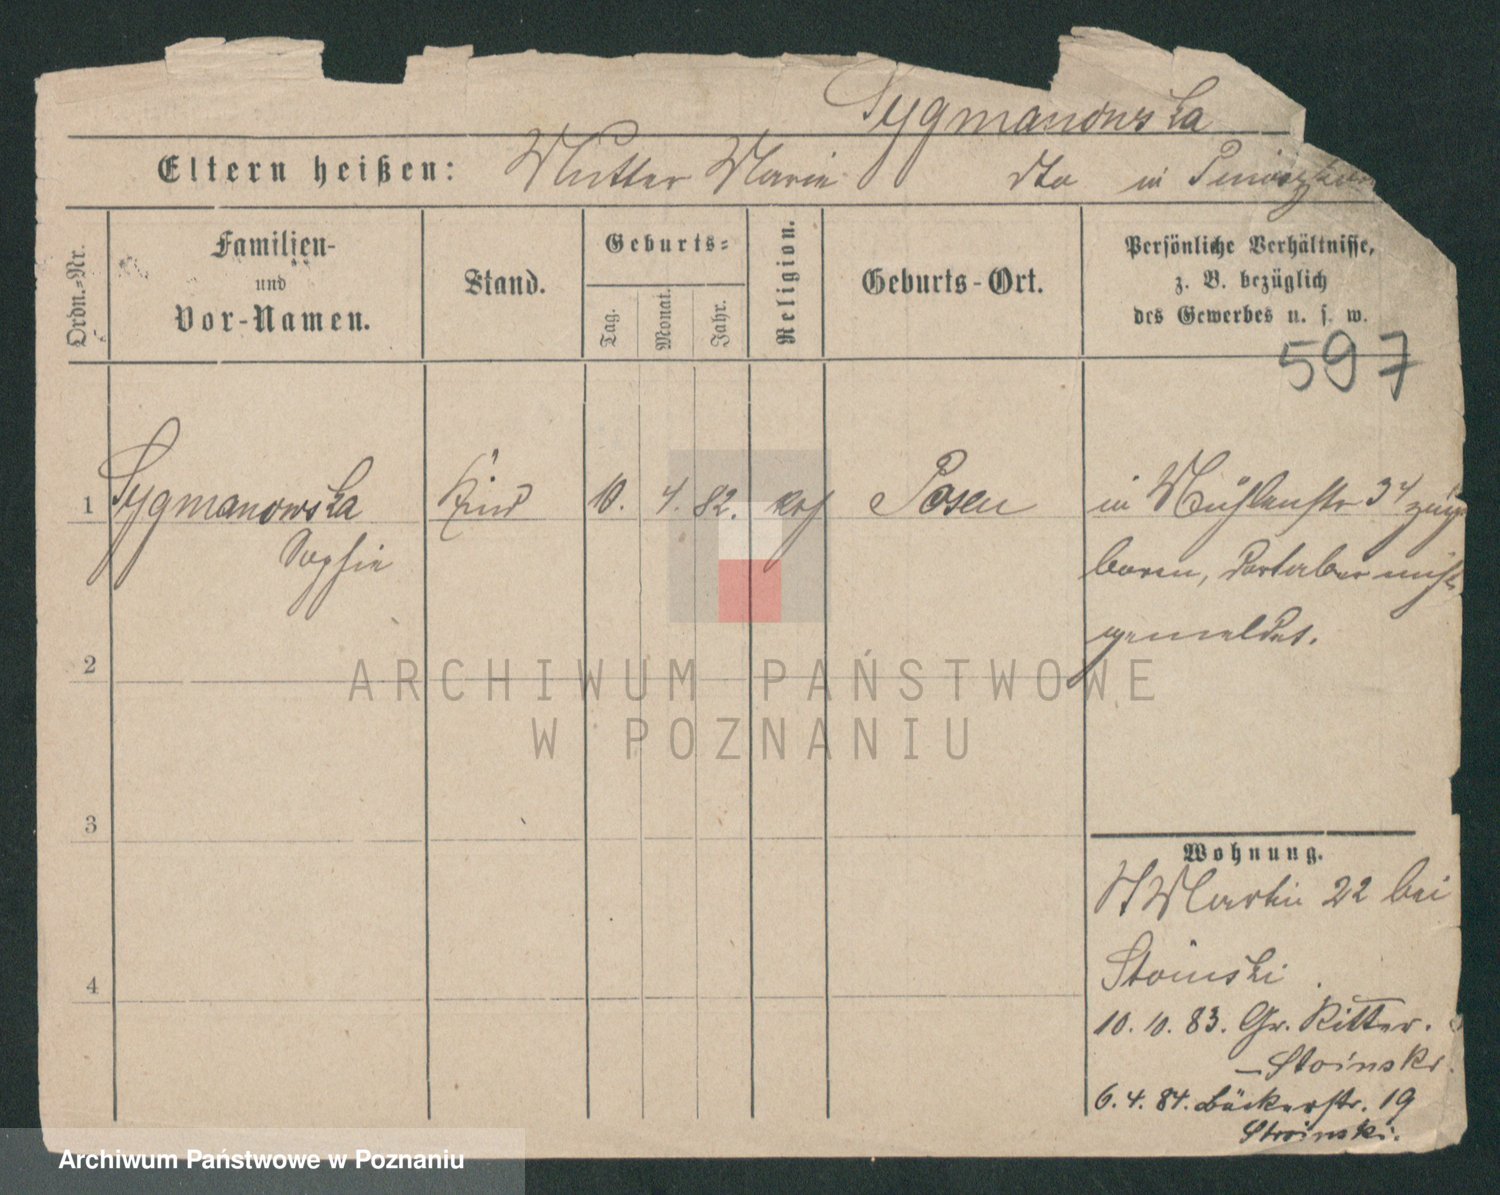 Sygmanowska
Eltern heißen: Mutter Marie dto in
Ordn.-Nr.
Familien-
und
Vor-Namen.
Stand.
Geburts-
Tag.
Monat.
Jahr.
Religion.
Geburts-Ort.
Persönliche Verhältnisse,
z. B. bezüglich
des Gewerbes u. s. w.
597
1 Sygmanowska Kind 10. 4. 82. kath Posen
Sophie
in Mühlenstr 34 zuge
boren, dort aber nicht
gemeldet.
2
3
4
Wohnung.
St Martin 22 bei
Stoinski
10. 10. 83. Gr. Ritter.
- Stoinski.
6. 4. 84. Bäckerstr. 19
Stroinski.
ARCHIWUM PAŃSTWOWE
W POZNANIU
Archiwum Państwowe w Poznaniu